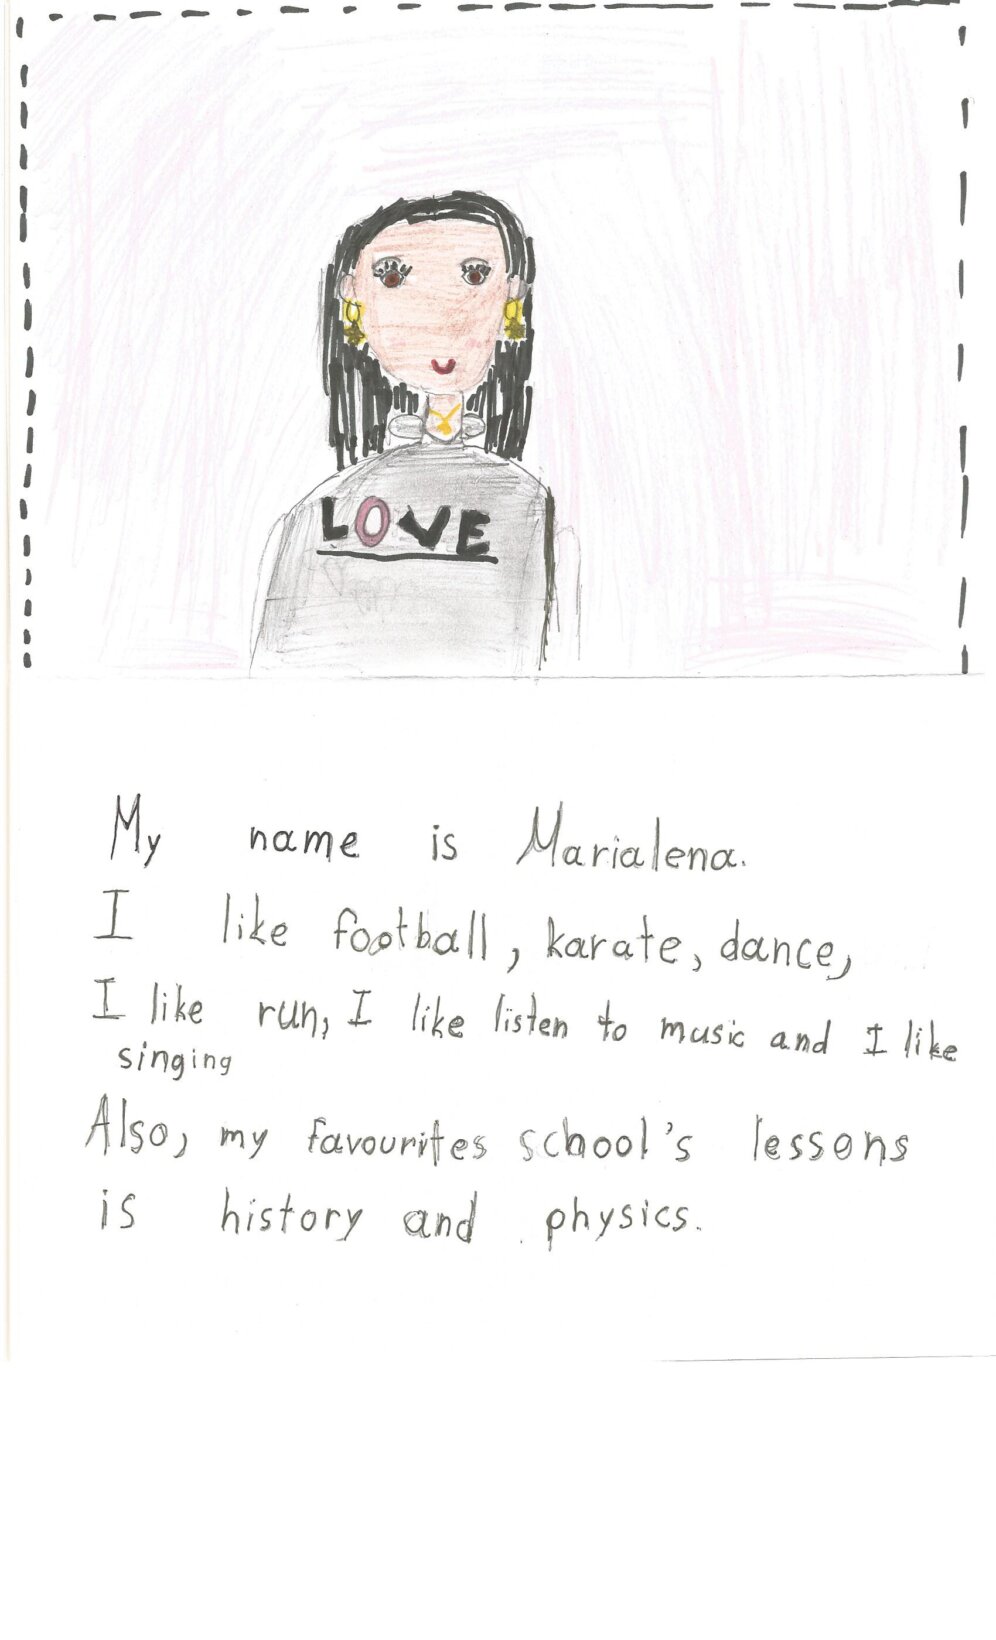 LOVE
My name is Marialena.
I like football, karate, dance,
I like run, I like listen to music and I like
singing
Also, my favourites school's lessons
is history and physics.